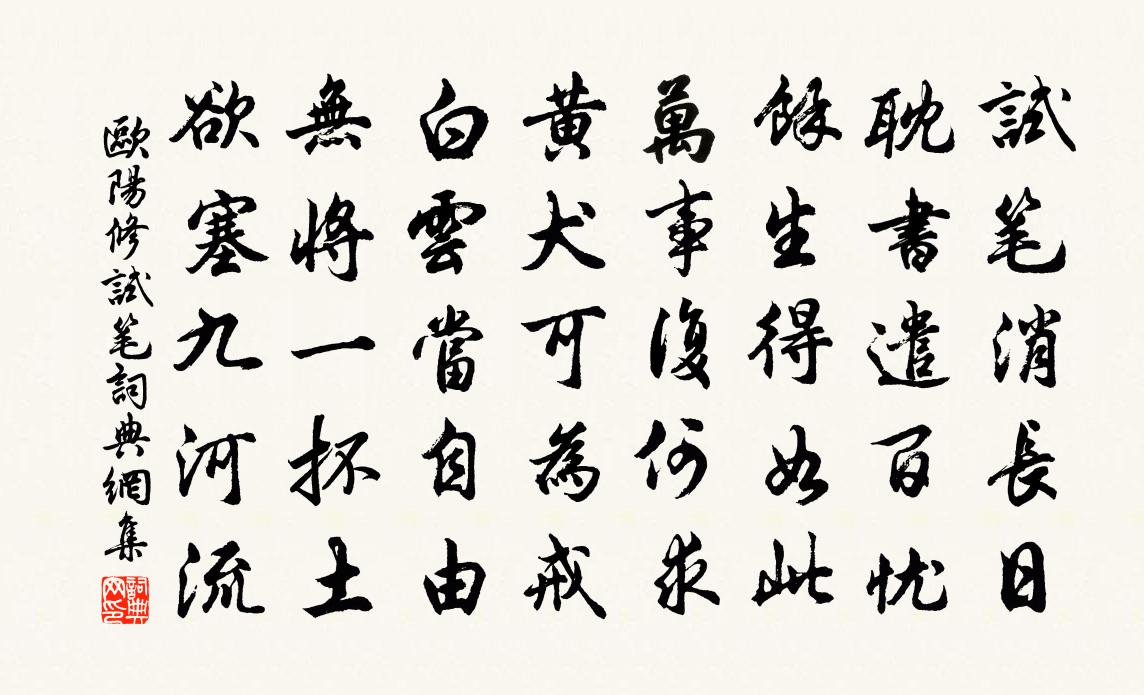 試笔消長日
耽書遣百忧
餘生得如此
萬事復何求
黄犬可為戒
白雲當自由
無將一抔土
欲塞九河流
歐陽修試笔詞典網集
詞典网印